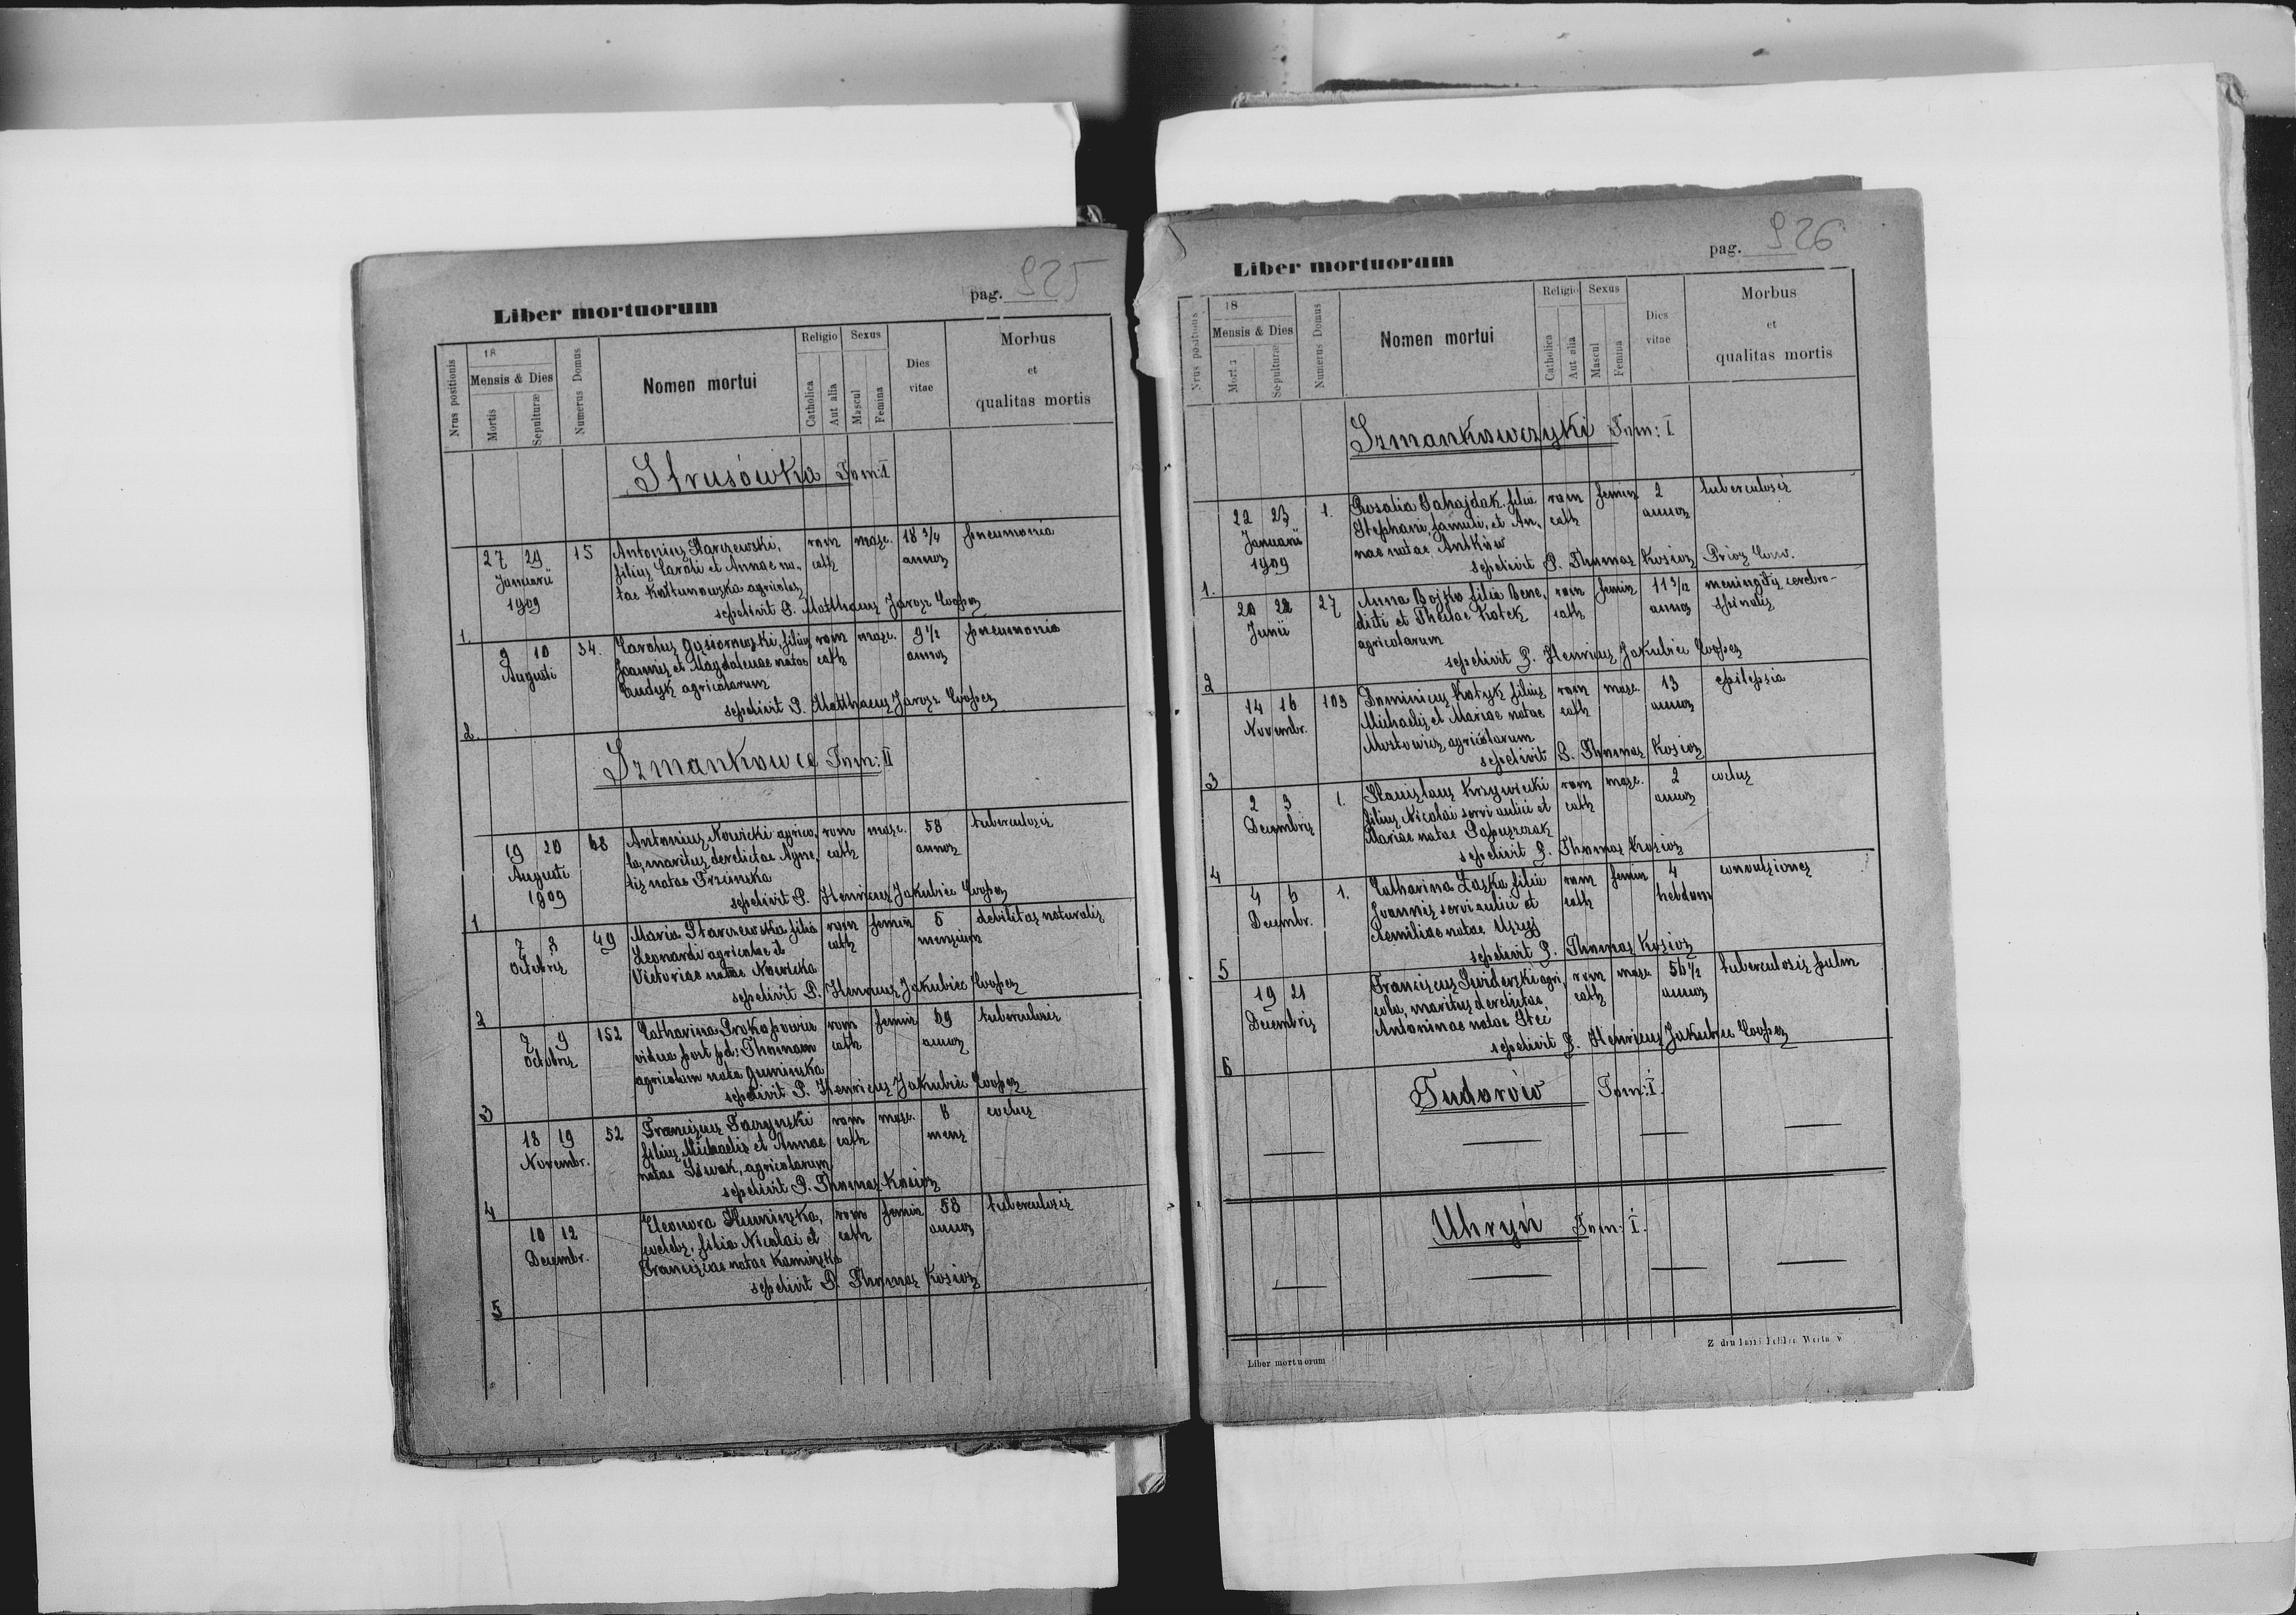 Liber mortuorum
pag. 925
Nrus positionis
18
Mensis & Dies
Mortis
Sepulturæ
Numerus Domus
Nomen mortui
Religio
Catholica
Aut alia
Sexus
Mascul
Femina
Dies
vitae
Morbus
et
qualitas mortis
Strusówka Tom: I
27 29 15 Antonius Starczewski, rom masc. 18 3/4 pneumonia
Januarii filius Caroli et Annae na- cath annor
1909 tae Kołtunowska agricolar
1. sepelivit P. Matthaeus Jarosz Cooper
9 10 34. Carolus Gąsiorowski, filius rom masc. 9 1/2 pneumonia
Augusti Joannis et Magdalenae natae cath annor
Dudyk agricolarum
2. sepelivit P. Matthaeus Jarosz Cooper
Szmankowce Tom: II
19 20 68 Antonius Nowicki agrico- rom masc. 58 tuberculosis
Augusti la, maritus derelictae Agne- cath annor
1909 tis natae
1 sepelivit P. Henricus Jakubiec Cooper
7 8 49 Maria Starczewska filia rom femin 6 debilitas naturalis
Octobris Leonardi agricolae et cath mensium
Victoriae natae Nowicka
2 sepelivit P. Henricus Jakubiec Cooper
7 9 152 Catharina Prokopowicz rom femin 69 tuberculosis
Octobris vidua post pd: Thomam cath annor
agricolam nata Gumińska
3 sepelivit P. Henricus Jakubiec Cooper
18 19 52 Franciscus rom masc. 8 coelus
Novembr. filius Michaelis et Annae cath mens
natae agricolarum
4 sepelivit P. Thomas Kosior
10 12 Eleonora femin 58 tuberculosis
Decembr. coelebs, filia Nicolai et cath annor
Franciscae natae Kamińska
5 sepelivit P. Thomas Kosior
Liber mortuorum
pag. 926
Nrus positionis
18
Mensis & Dies
Mortis
Sepulturæ
Numerus Domus
Nomen mortui
Religio
Catholica
Aut alia
Sexus
Mascul
Femina
Dies
vitae
Morbus
et
qualitas mortis
Szmankowczyki Tom: I
22 23 1. Rosalia Sahajdak filia rom femin 2 tuberculosis
Januarii Stephani famuli, et An- cath annor
1909 nae natae Antków
1. sepelivit P. Thomas Kosior Prior Conv.
20 22 27 Anna Bojko filia Bene- rom femin 11 3/12 meningitis cerebro-
Junii dicti et Theclae Kotek cath annor spinalis
agricolarum
2 sepelivit P. Henricus Jakubiec Cooper
14 16 103 Dominicus Kotyk filius rom masc. 13 epilepsia
Novembr. Michaelis et Mariae natae cath annor
agricolarum
3 sepelivit P. Thomas Kosior
2 3 1. Stanislaus Krzywicki rom masc. 2 coelus
Decembris filius Nicolai servi aulici et cath annor
Mariae natae Papuszczak
4 sepelivit P. Thomas Kosior
4 6 1. Catharina Zaska filia rom femin 4 convulsiones
Decembr. Joannis servi aulici et cath hebdom
Aemiliae natae
5 sepelivit P. Thomas Kosior
19 21 Franciscus Świderski agri- rom masc 56 1/2 tuberculosis pulm
Decembris cola, maritus derelictae cath annor
Antoninae natae Steć
6 sepelivit P. Henricus Jakubiec Cooper
Tudorów Tom: I.
Uhryń Tom: I.
Liber mortuorum